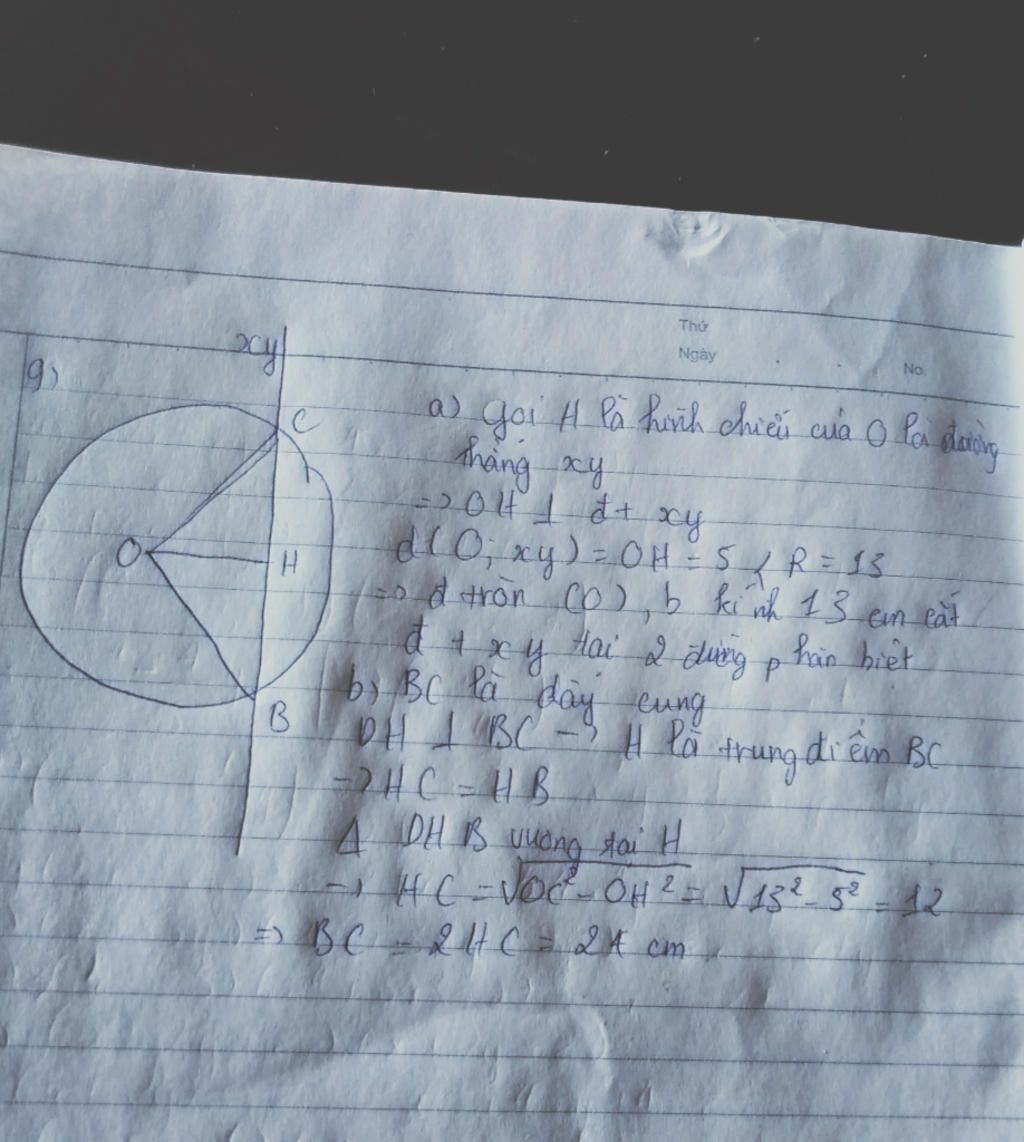 Thứ
Ngày
No.
9)
xy
C
O
H
B
a) Gọi H là hình chiếu của O lại đường
thẳng xy
=> OH ⊥ đt xy
d(O; xy) = OH = 5 < R = 13
=> đ tròn (O), b kính 13 cm cắt
đ t xy tại 2 đường phân biệt
b) BC là dây cung
OH ⊥ BC -> H là trung điểm BC
-> HC = HB
Δ OHB vuông tại H
-> HC = √OC² - OH² = √13² - 5² = 12
=> BC = 2HC = 24 cm